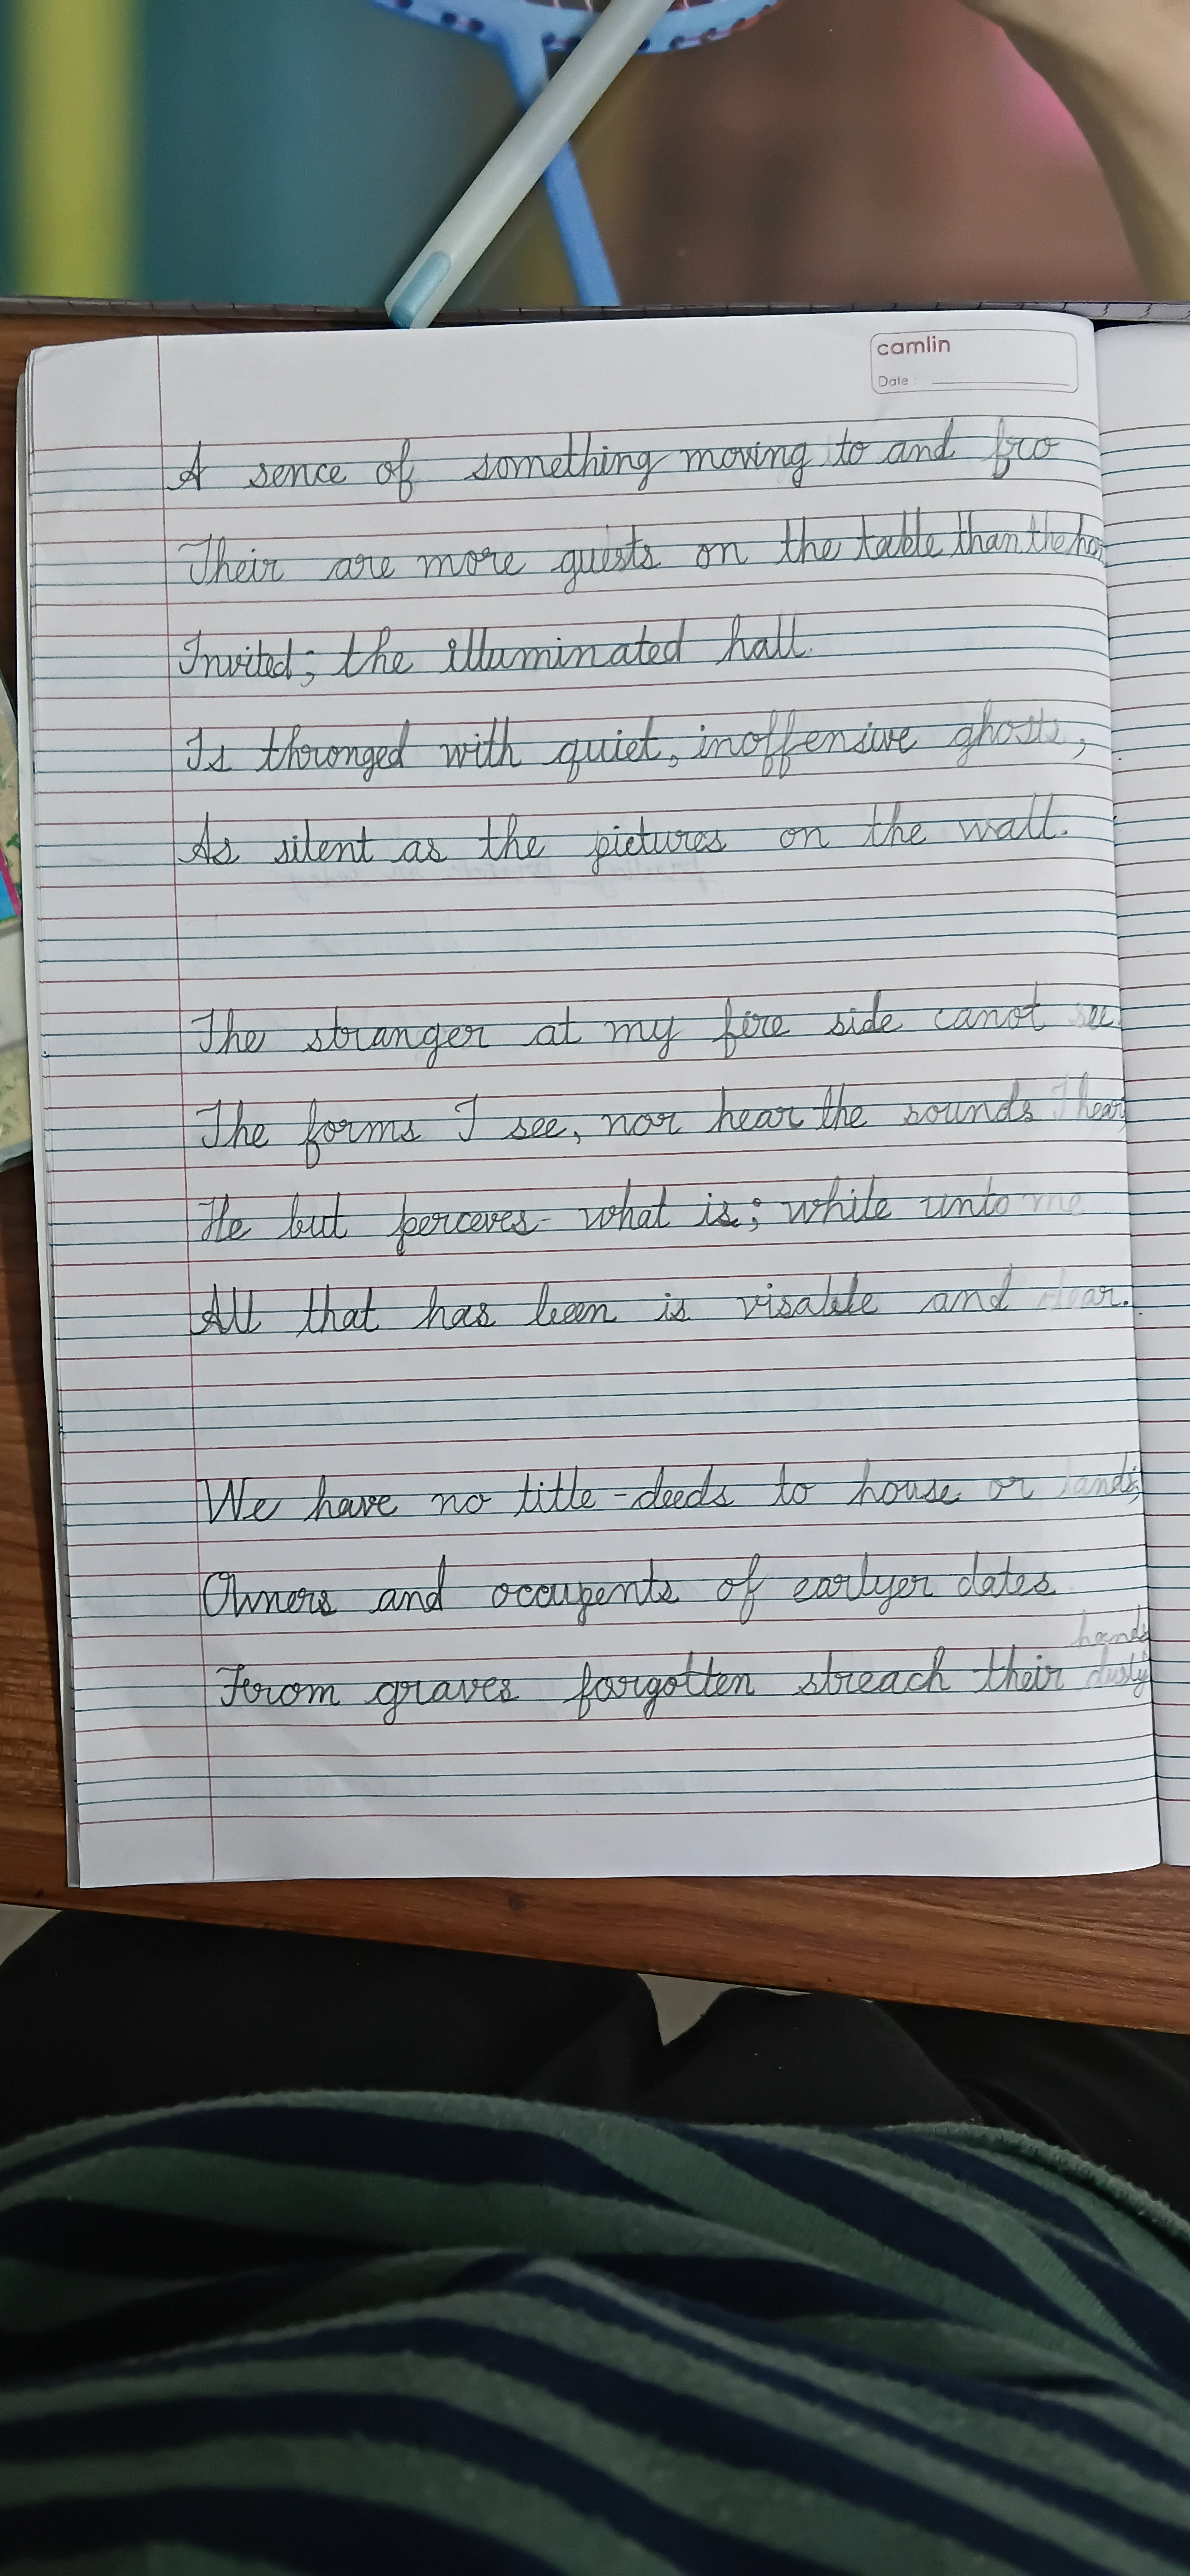 camlin
Date :
A sence of something moving to and fro
Their are more guests on the table than the hos
Invited; the illuminated hall.
Is thronged with quiet, inoffensive ghosts,
As silent as the pictures on the wall.
The stranger at my fire side canot see
The forms I see, nor hear the sounds I hear
He but perceves what is; while unto me
All that has been is visable and clear.
We have no title-deeds to house or lands;
Owners and occupents of earlyer dates
hands
From graves forgotten streach their dusty